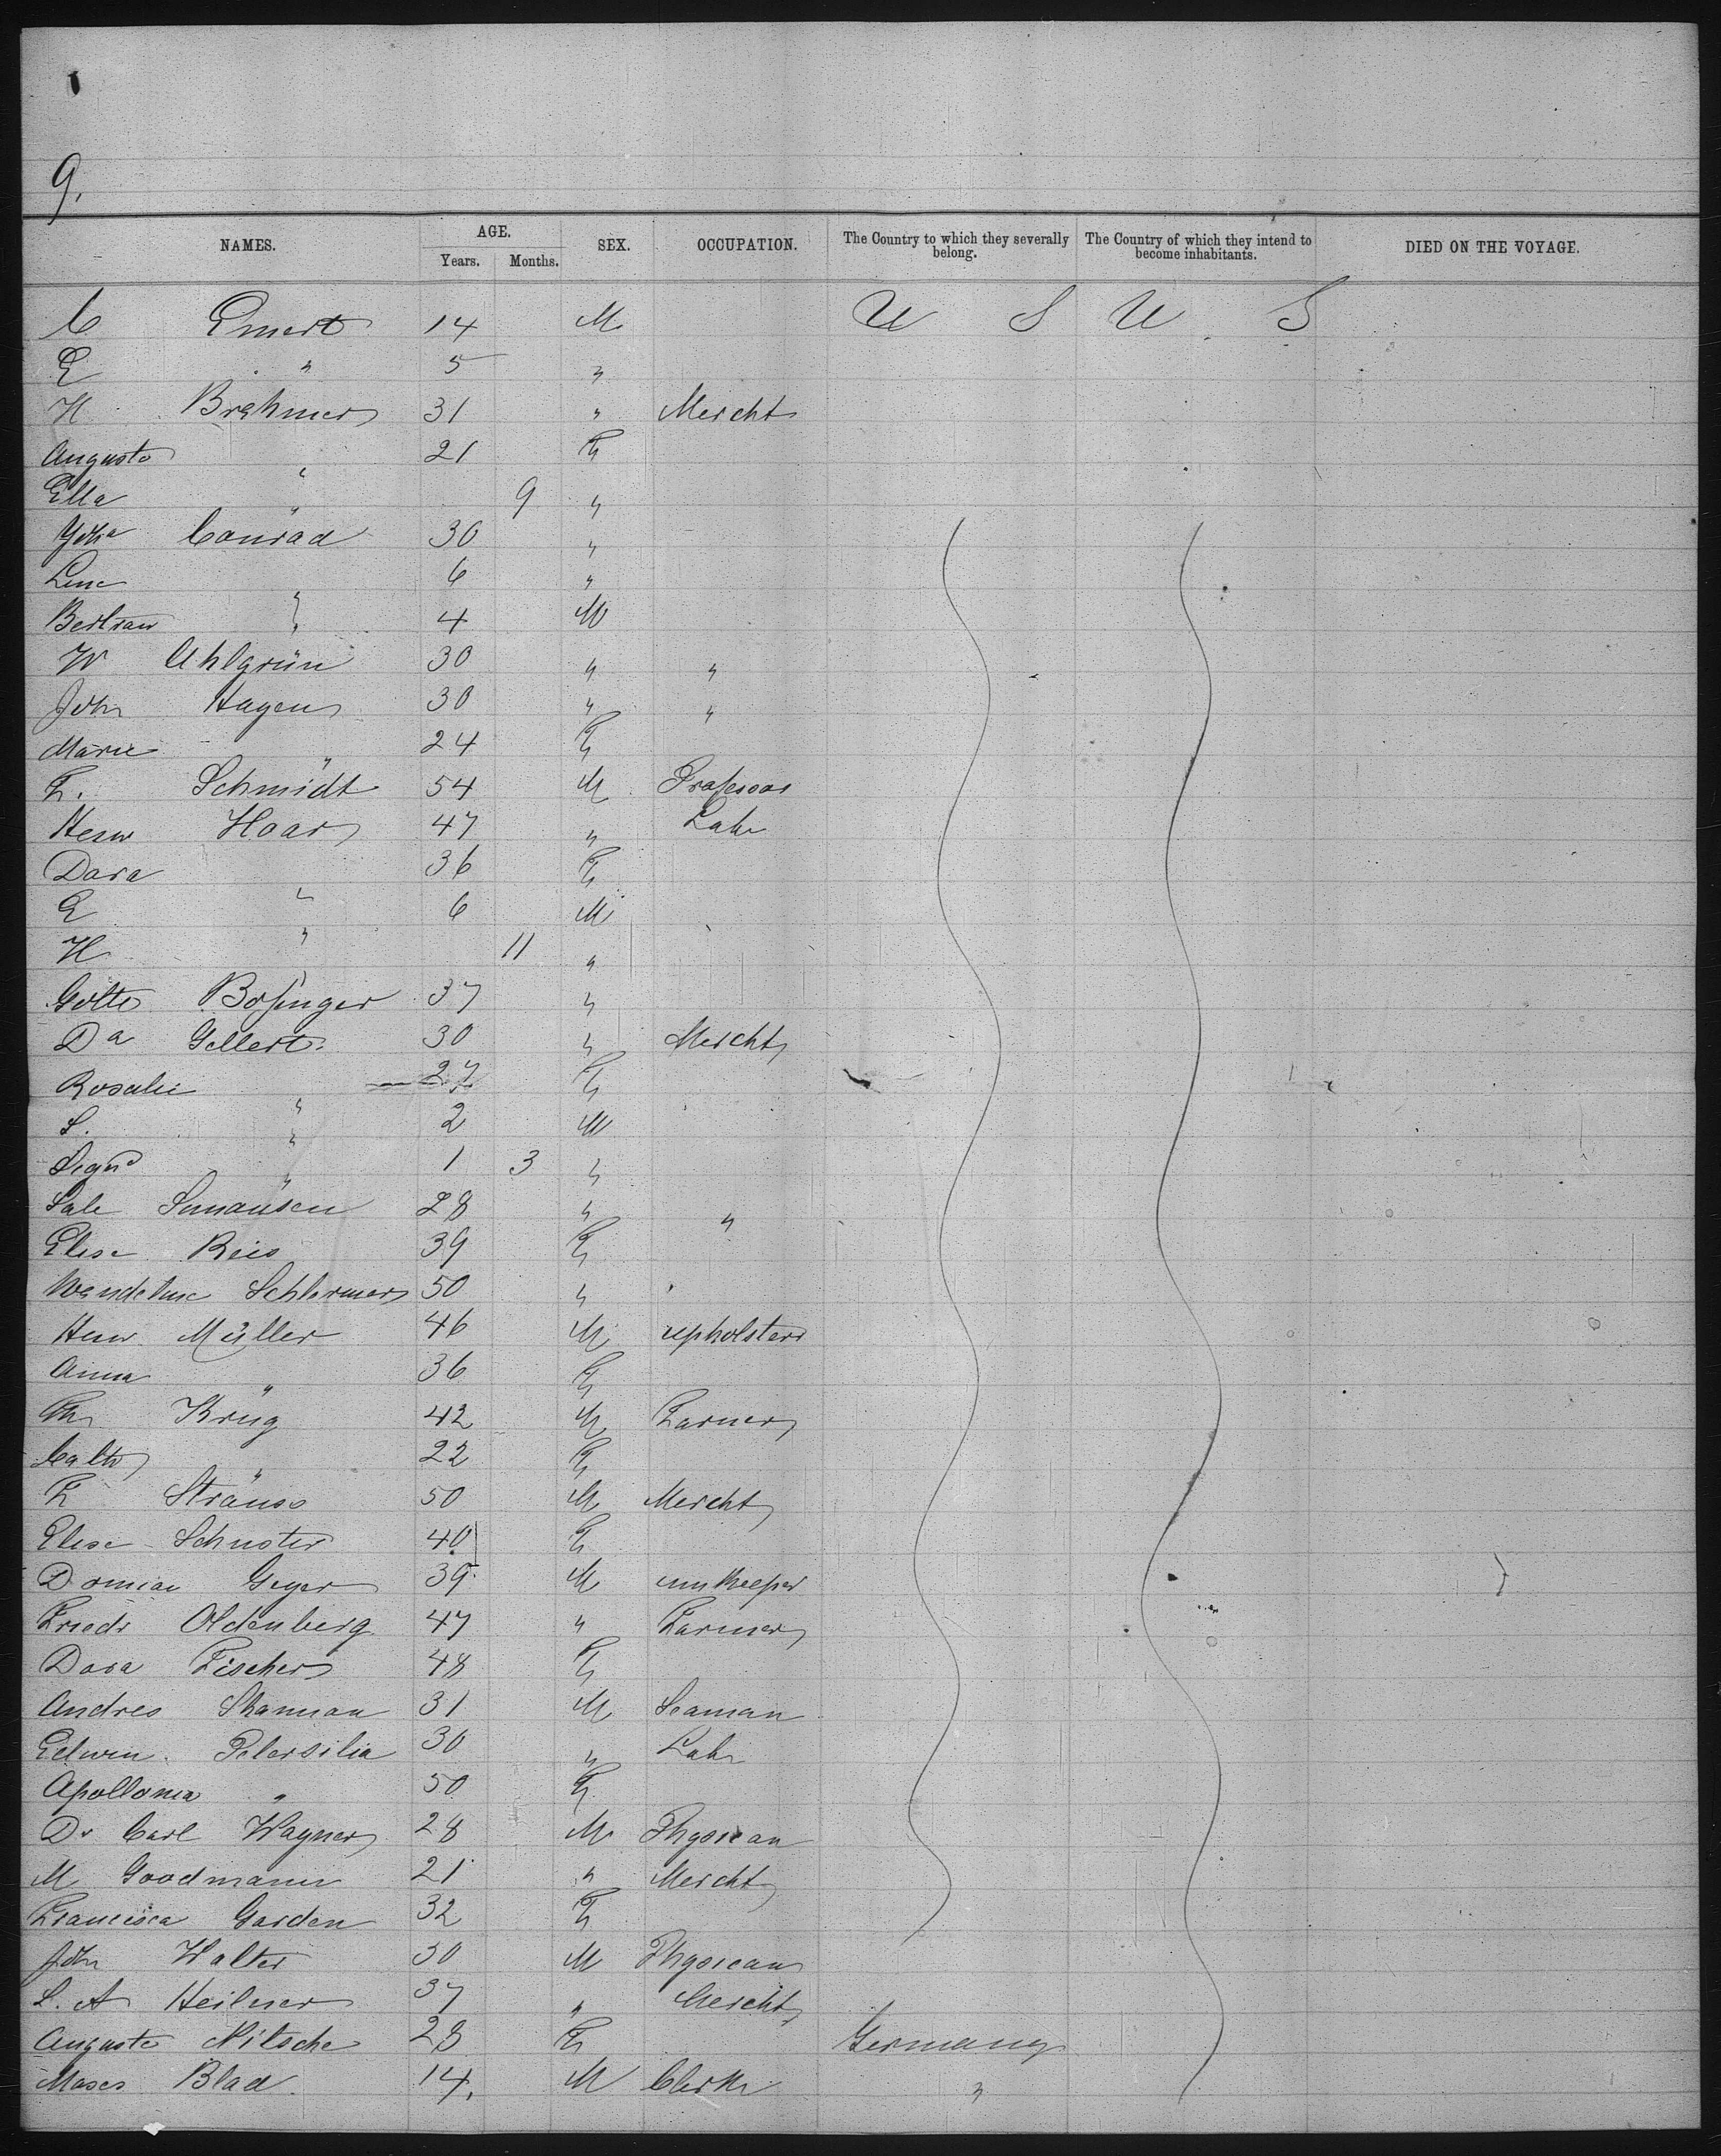 9.
NAMES. AGE. SEX. OCCUPATION. The Country to which they severally belong. The Country of which they intend to become inhabitants. DIED ON THE VOYAGE.
Years. Months.
C Emert 14 M U S U S
E " 5 "
H Brahmer 31 " Mercht
Auguste " 21 F
Ella " 9 "
Joha Conrad 30 "
Line " 6 "
Bertram " 4 M
W Uhlgrün 30 " "
John Hagen 30 " "
Marie " 24 F
F. Schmidt 54 M Professor
Henr Haar 47 " Labr
Dora " 36 F
E " 6 M
H " 11 "
Gotte Bossinger 37 "
Da Gellert 30 " Mercht
Rosalie " 27 F
S. " 2 M
Sigm " 1 3 "
28 " "
Elise Reis 39 F
Wendeline 50 "
Henr Müller 46 M upholster
Anna " 36 F
Ph Krug 42 M Farmer
Cath " 22 F
F Strauss 50 M Mercht
Elise Schuster 40 F
Domian Geyer 39 M innkeeper
Friedr Oldenberg 47 " Farmer
Dora Fischer 48 F
Andres 31 M Seaman
Edwin Petersilia 30 " Labr
Apollonia " 50 F
Dr Carl Wagner 28 M Physican
M Goodmann 21 " Mercht
Francisca Garden 32 F
John Walter 30 M Physican
L. A Heilner 37 " Mercht
Auguste Nitsche 28 F Germany
Moses Blad 14. M Clerk "